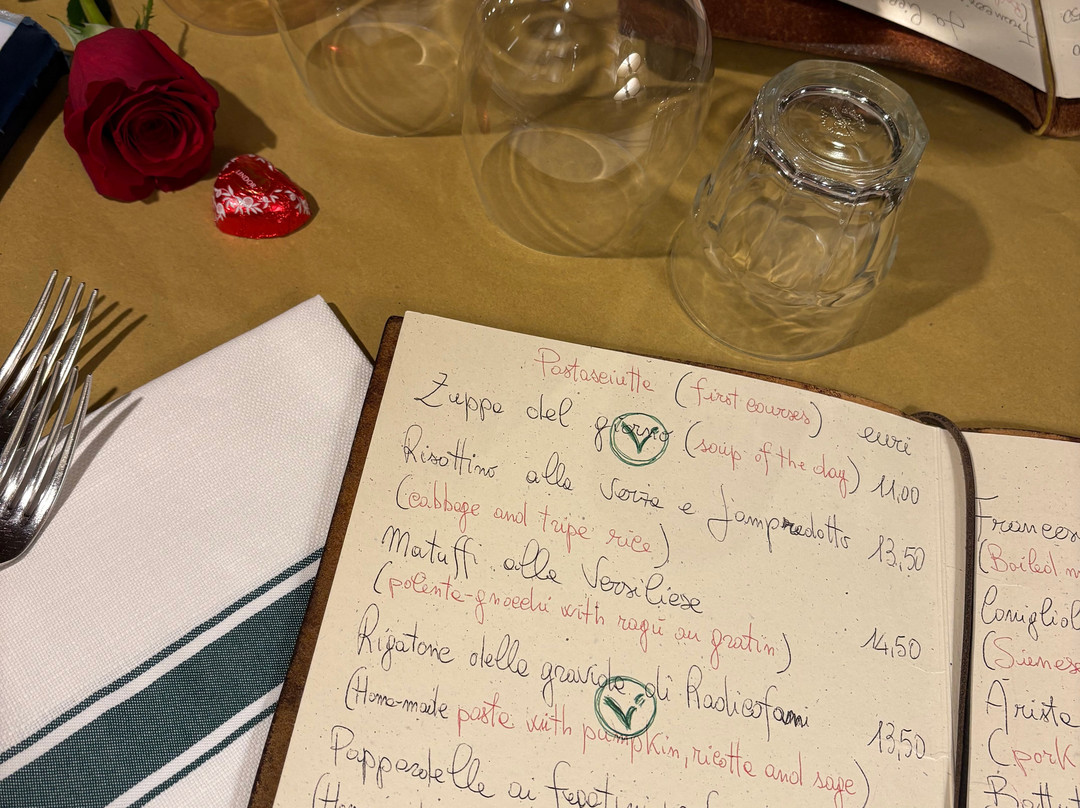 Pastasciutte (first courses)
euri
Zuppa del giorno (soup of the day) 11,00
Risottino alla Verza e Lampredotto 13,50
(cabbage and tripe rice)
Matuffi alla Versiliese
(polenta-gnocchi with ragù au gratin) 14,50
Rigatone della gravida di Radicofani
(Home-made pasta with pumpkin, ricotta and sage) 13,50
Pappardelle ai
(Hom
Frances
(Boiled m
Conigliol
(Sienes
Arista
(pork
LINDOR